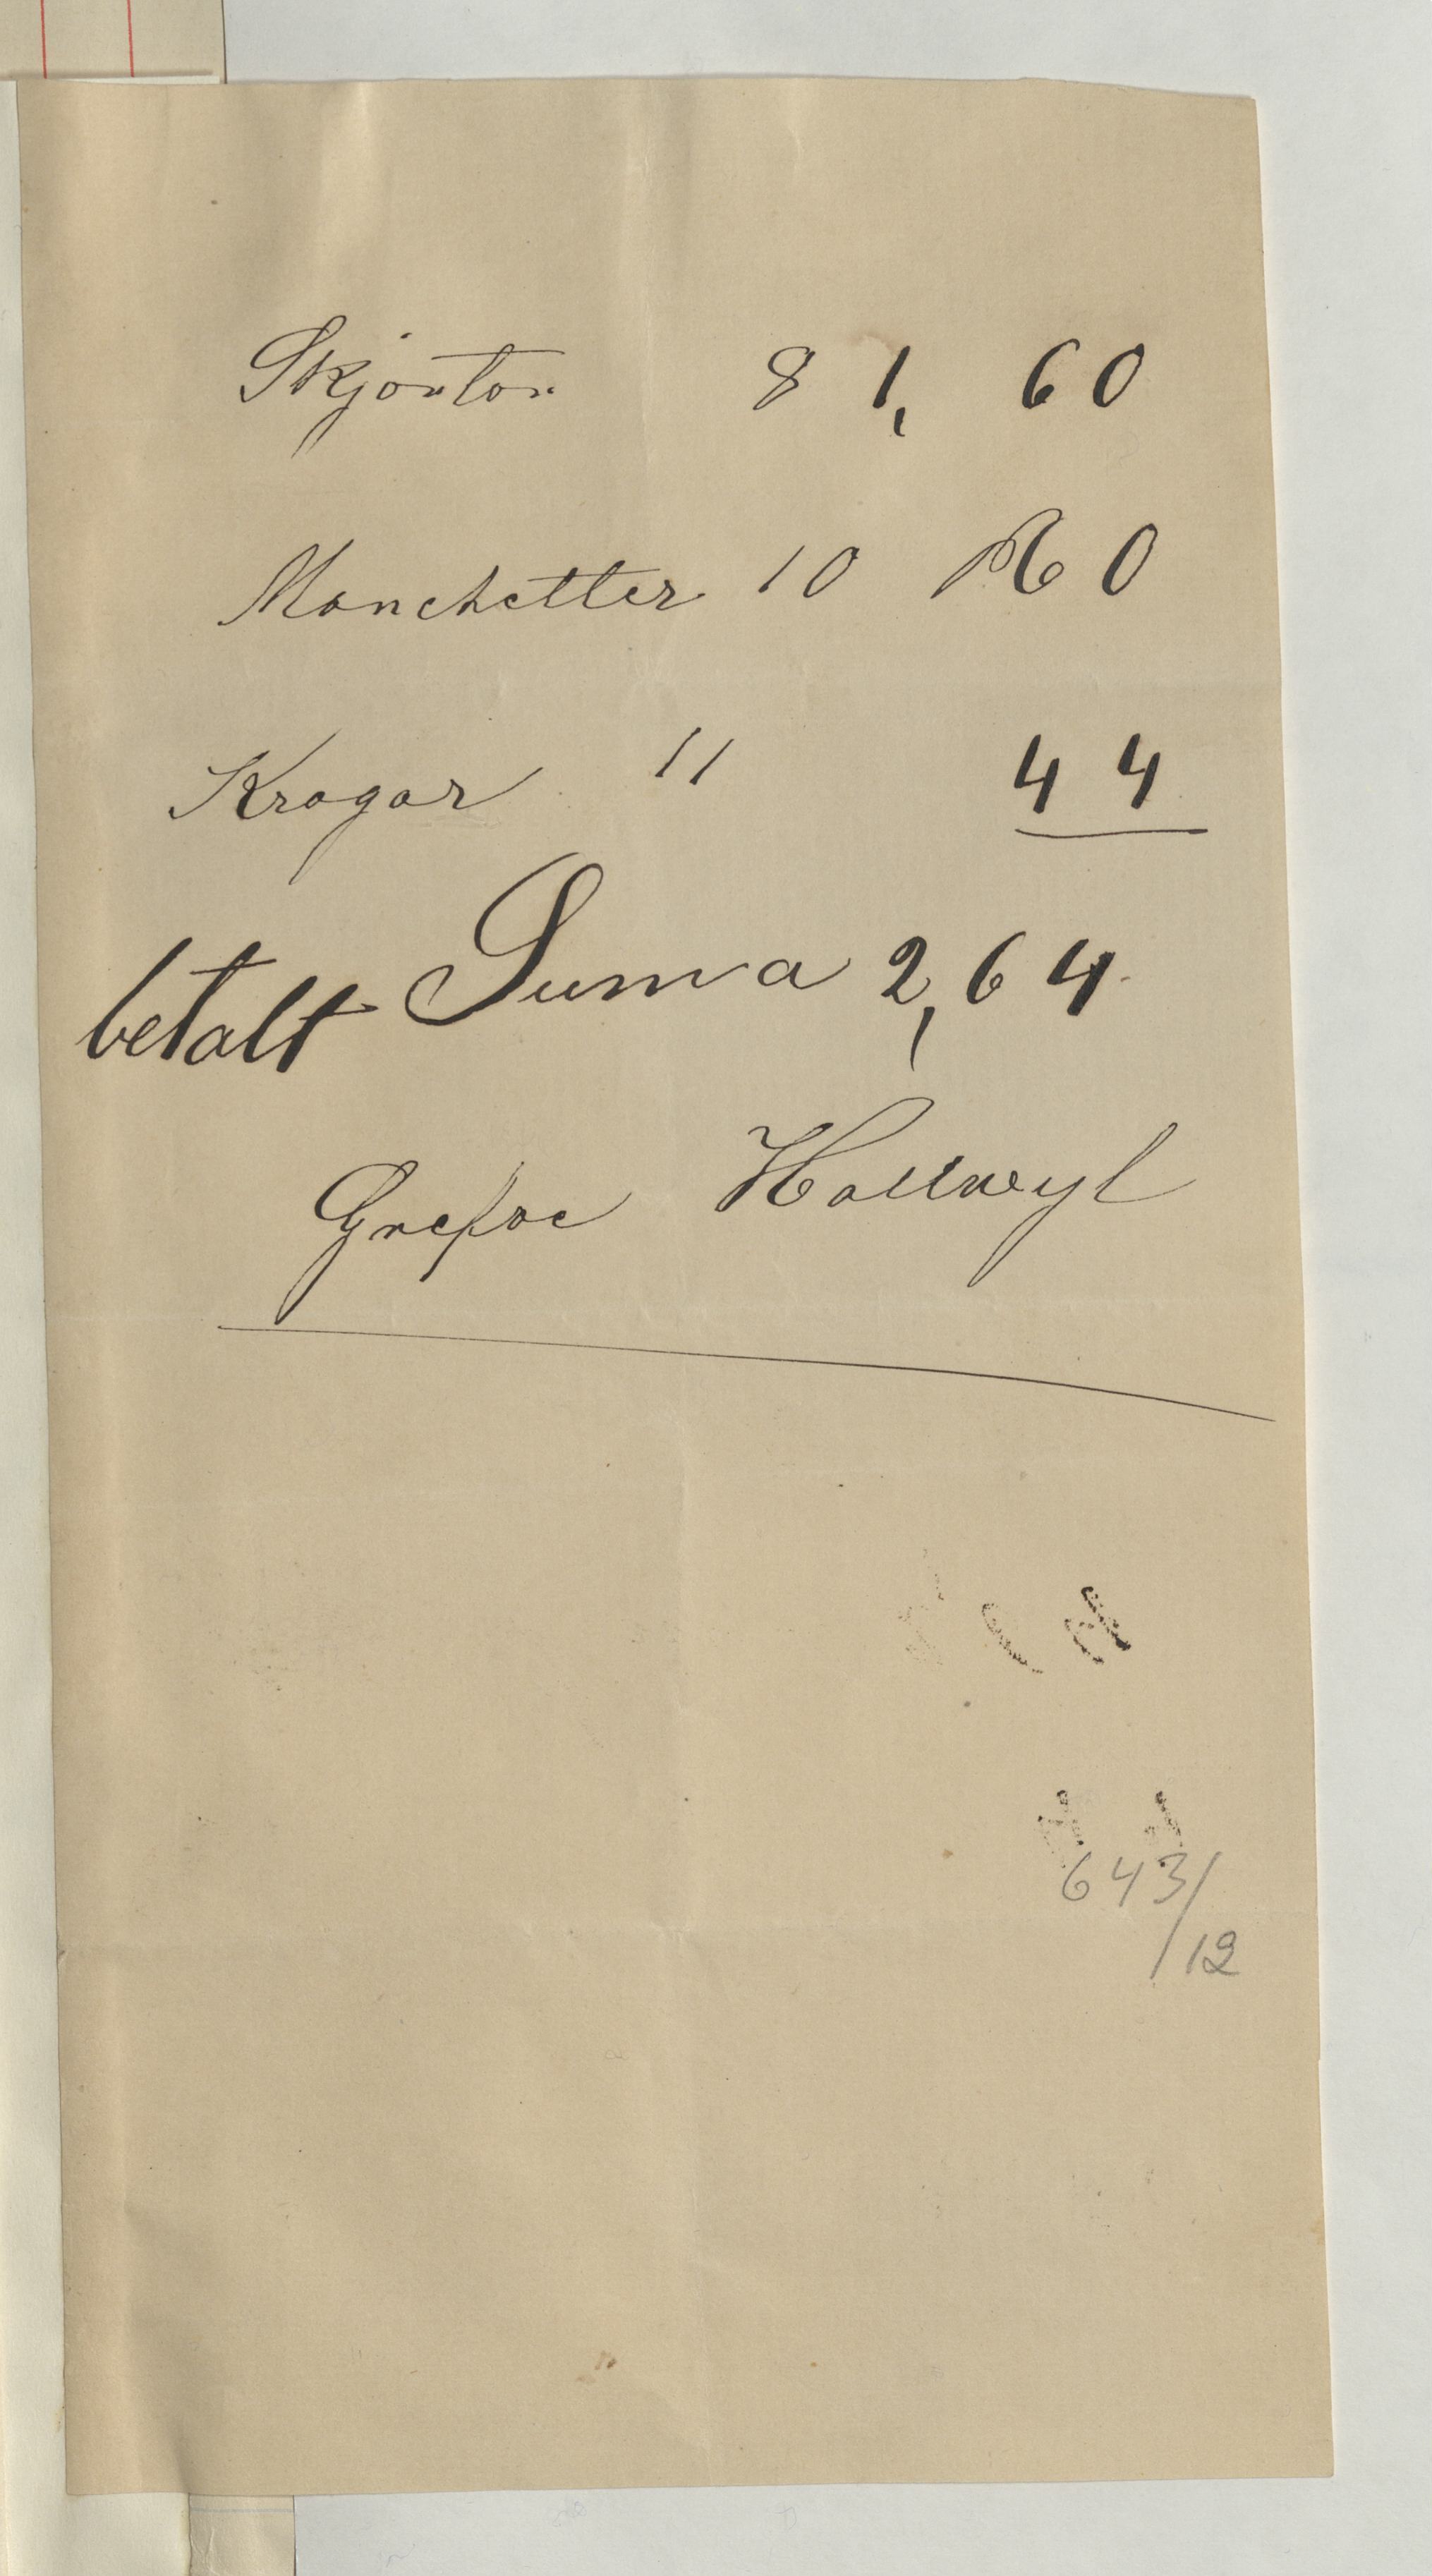 Skjortor 8 1, 60
Manchetter 10 60
Kragar 11 44
Suma 2,64
betalt
Grefve Hallwyl
643/
12